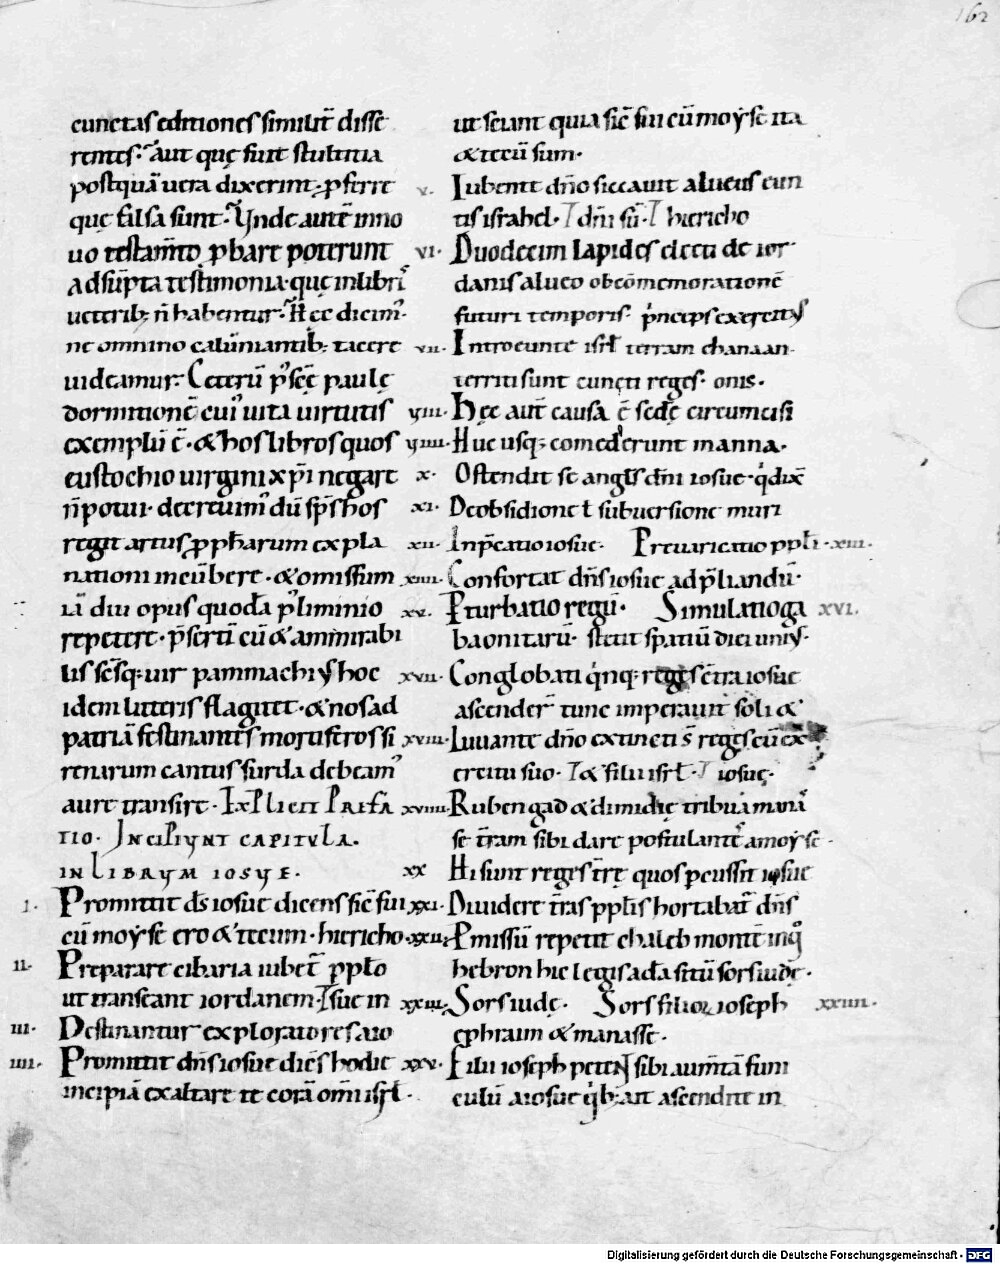 162
cunctas editiones similit̄ disse
rentes. aut quę fuit stultitia
postquā uera dixerint, ꝓferre
quę falsa sunt. Vnde autē in no
uo testam̄to, ꝓbare poterunt
adsūpta testimonia, quę in libris
ueterib; n̄ habentur. Hęc dicim᷒.
ne omnino calūniantib; tacere
uideamur. Ceterū p᷒ scę̄ paulę
dormitionē cui᷒ uita uirtutis
exemplū ē. & hos libros quos
eustochio uirgini xp̄i negare
n̄ potui. decreuim᷒ dū sp̄s hos
regit artus, ꝓphetarum expla
nationi incūbere. & omissum
iā diu opus quodā p̄liminio
repetere. p̄sertī cū & ammirabi
lis scs̄q; uir pammachius hoc
idem litteris flagitet. & nos ad
patriā festinantes mortiferos si
renarum cantus surda debeam᷒
aure transire. Explicit Prefa
tio. Incipiunt capitula.
in librum iosue.
i. Promittit ds̄ iosue dicens sic̄ fui
cū moyse ero & tecum. hiericho
ii. Preparare cibaria iubet̄ ppło
ut transeant iordanem. Isue in
iii. Destinantur exploratores aio
iiii. Promittit dn̄s iosue dicēs hodie
incipiā exaltare te corā om̄i isrł.
ut sciant quia sic̄ fui cū moyse ita
& tecū sum.
v. Iubente dn̄o siccauit alueus cun
tis israhel. I dn̄i sū. I hiericho
vi. Duodecim lapides electi de ior
danis alueo ob cōmemorationē
futuri temporis. p̄nceps exercitus
vii. Introeunte isrł terram chanaan.
territi sunt cuncti reges. onis.
viii. Hęc aut̄ causa ē scdę circumcisi
viiii. Huc usq; comederunt manna.
x. Ostendit se angls̄ dn̄i iosue. q̄ dix̄
xi. De obsidione ł subuersione muri
xii. Inp̄catio iosue. Preuaricatio ppłi. xiii.
xiiii. Confortat dn̄s iosue ad p̄liandū.
xv. Pturbatio regū. Simulatio ga xvi.
baonitarū. stetit spatiū diei uni᷒.
xvii. Conglobati q̄nq; reges cōtra iosue
ascender̄ tunc imperauit soli &
xviii. Iuuante dn̄o extincti s̄ reges cū ex
ercitu suo. I & filii isrł. I iosuę.
xviiii. Ruben gad & dimidię tribui mana
se t̄ram sibi dare postulant̄ a moyse.
xx Hi sunt reges t̄rę quos pcussit iosue
xxi. Diuidere t̄ras ppłis hortabat̄ dn̄s
xxii. Pmissū repetit chaleb montē inq᷒
hebron hic legis adā sitū sors iudę.
xxiii. Sors iudę. Sors filioꝝ ioseph xxiiii.
ephraim & manasse.
xxv. Filii ioseph peten̄ sibi aum̄tā funi
culū a iosue qb; ait ascendite in
Digitalisierung gefördert durch die Deutsche Forschungsgemeinschaft - DFG